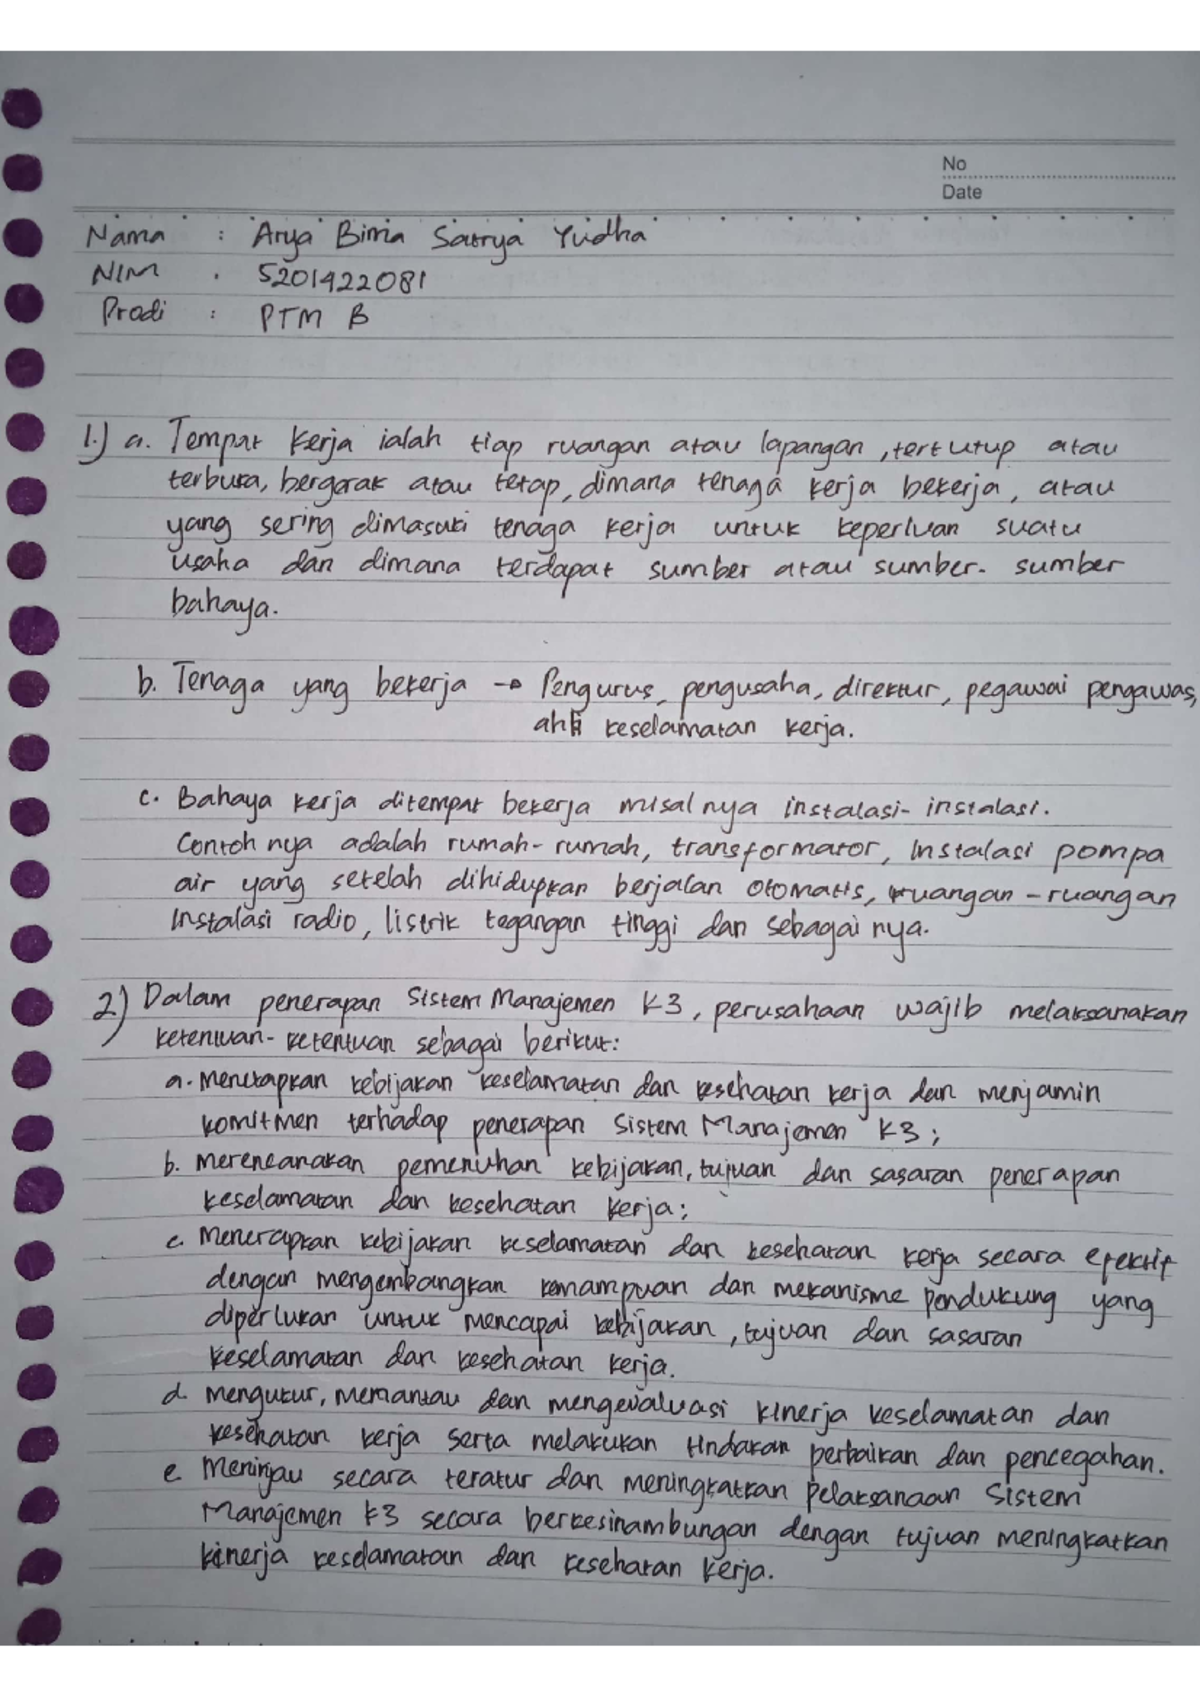 No
Date
Nama : Arya Bima Satrya Yudha
NIM . 5201422081
Prodi : PTM B
1.) a. Tempat kerja ialah tiap ruangan atau lapangan, tertutup atau
terbuka, bergerak atau tetap, dimana tenaga kerja bekerja, atau
yang sering dimasuki tenaga kerja untuk keperluan suatu
usaha dan dimana terdapat sumber atau sumber-sumber
bahaya.
b. Tenaga yang bekerja → Pengurus, pengusaha, direktur, pegawai pengawas,
ahli keselamatan kerja.
c. Bahaya kerja ditempat bekerja misalnya instalasi-instalasi.
Contohnya adalah rumah-rumah, transformator, Instalasi pompa
air yang setelah dihidupkan berjalan otomatis, ruangan-ruangan
Instalasi radio, listrik tegangan tinggi dan sebagainya.
2) Dalam penerapan Sistem Manajemen K3, perusahaan wajib melaksanakan
ketentuan-ketentuan sebagai berikut:
a. Menetapkan kebijakan keselamatan dan kesehatan kerja dan menjamin
komitmen terhadap penerapan Sistem Manajemen K3;
b. Merencanakan pemenuhan kebijakan, tujuan dan sasaran penerapan
keselamatan dan kesehatan kerja;
c. Menerapkan kebijakan keselamatan dan kesehatan kerja secara efektif
dengan mengembangkan kemampuan dan mekanisme pendukung yang
diperlukan untuk mencapai kebijakan, tujuan dan sasaran
keselamatan dan kesehatan kerja.
d. Mengukur, memantau dan mengevaluasi kinerja keselamatan dan
kesehatan kerja serta melakukan tindakan perbaikan dan pencegahan.
e. Meninjau secara teratur dan meningkatkan pelaksanaan Sistem
Manajemen K3 secara berkesinambungan dengan tujuan meningkatkan
kinerja keselamatan dan kesehatan kerja.